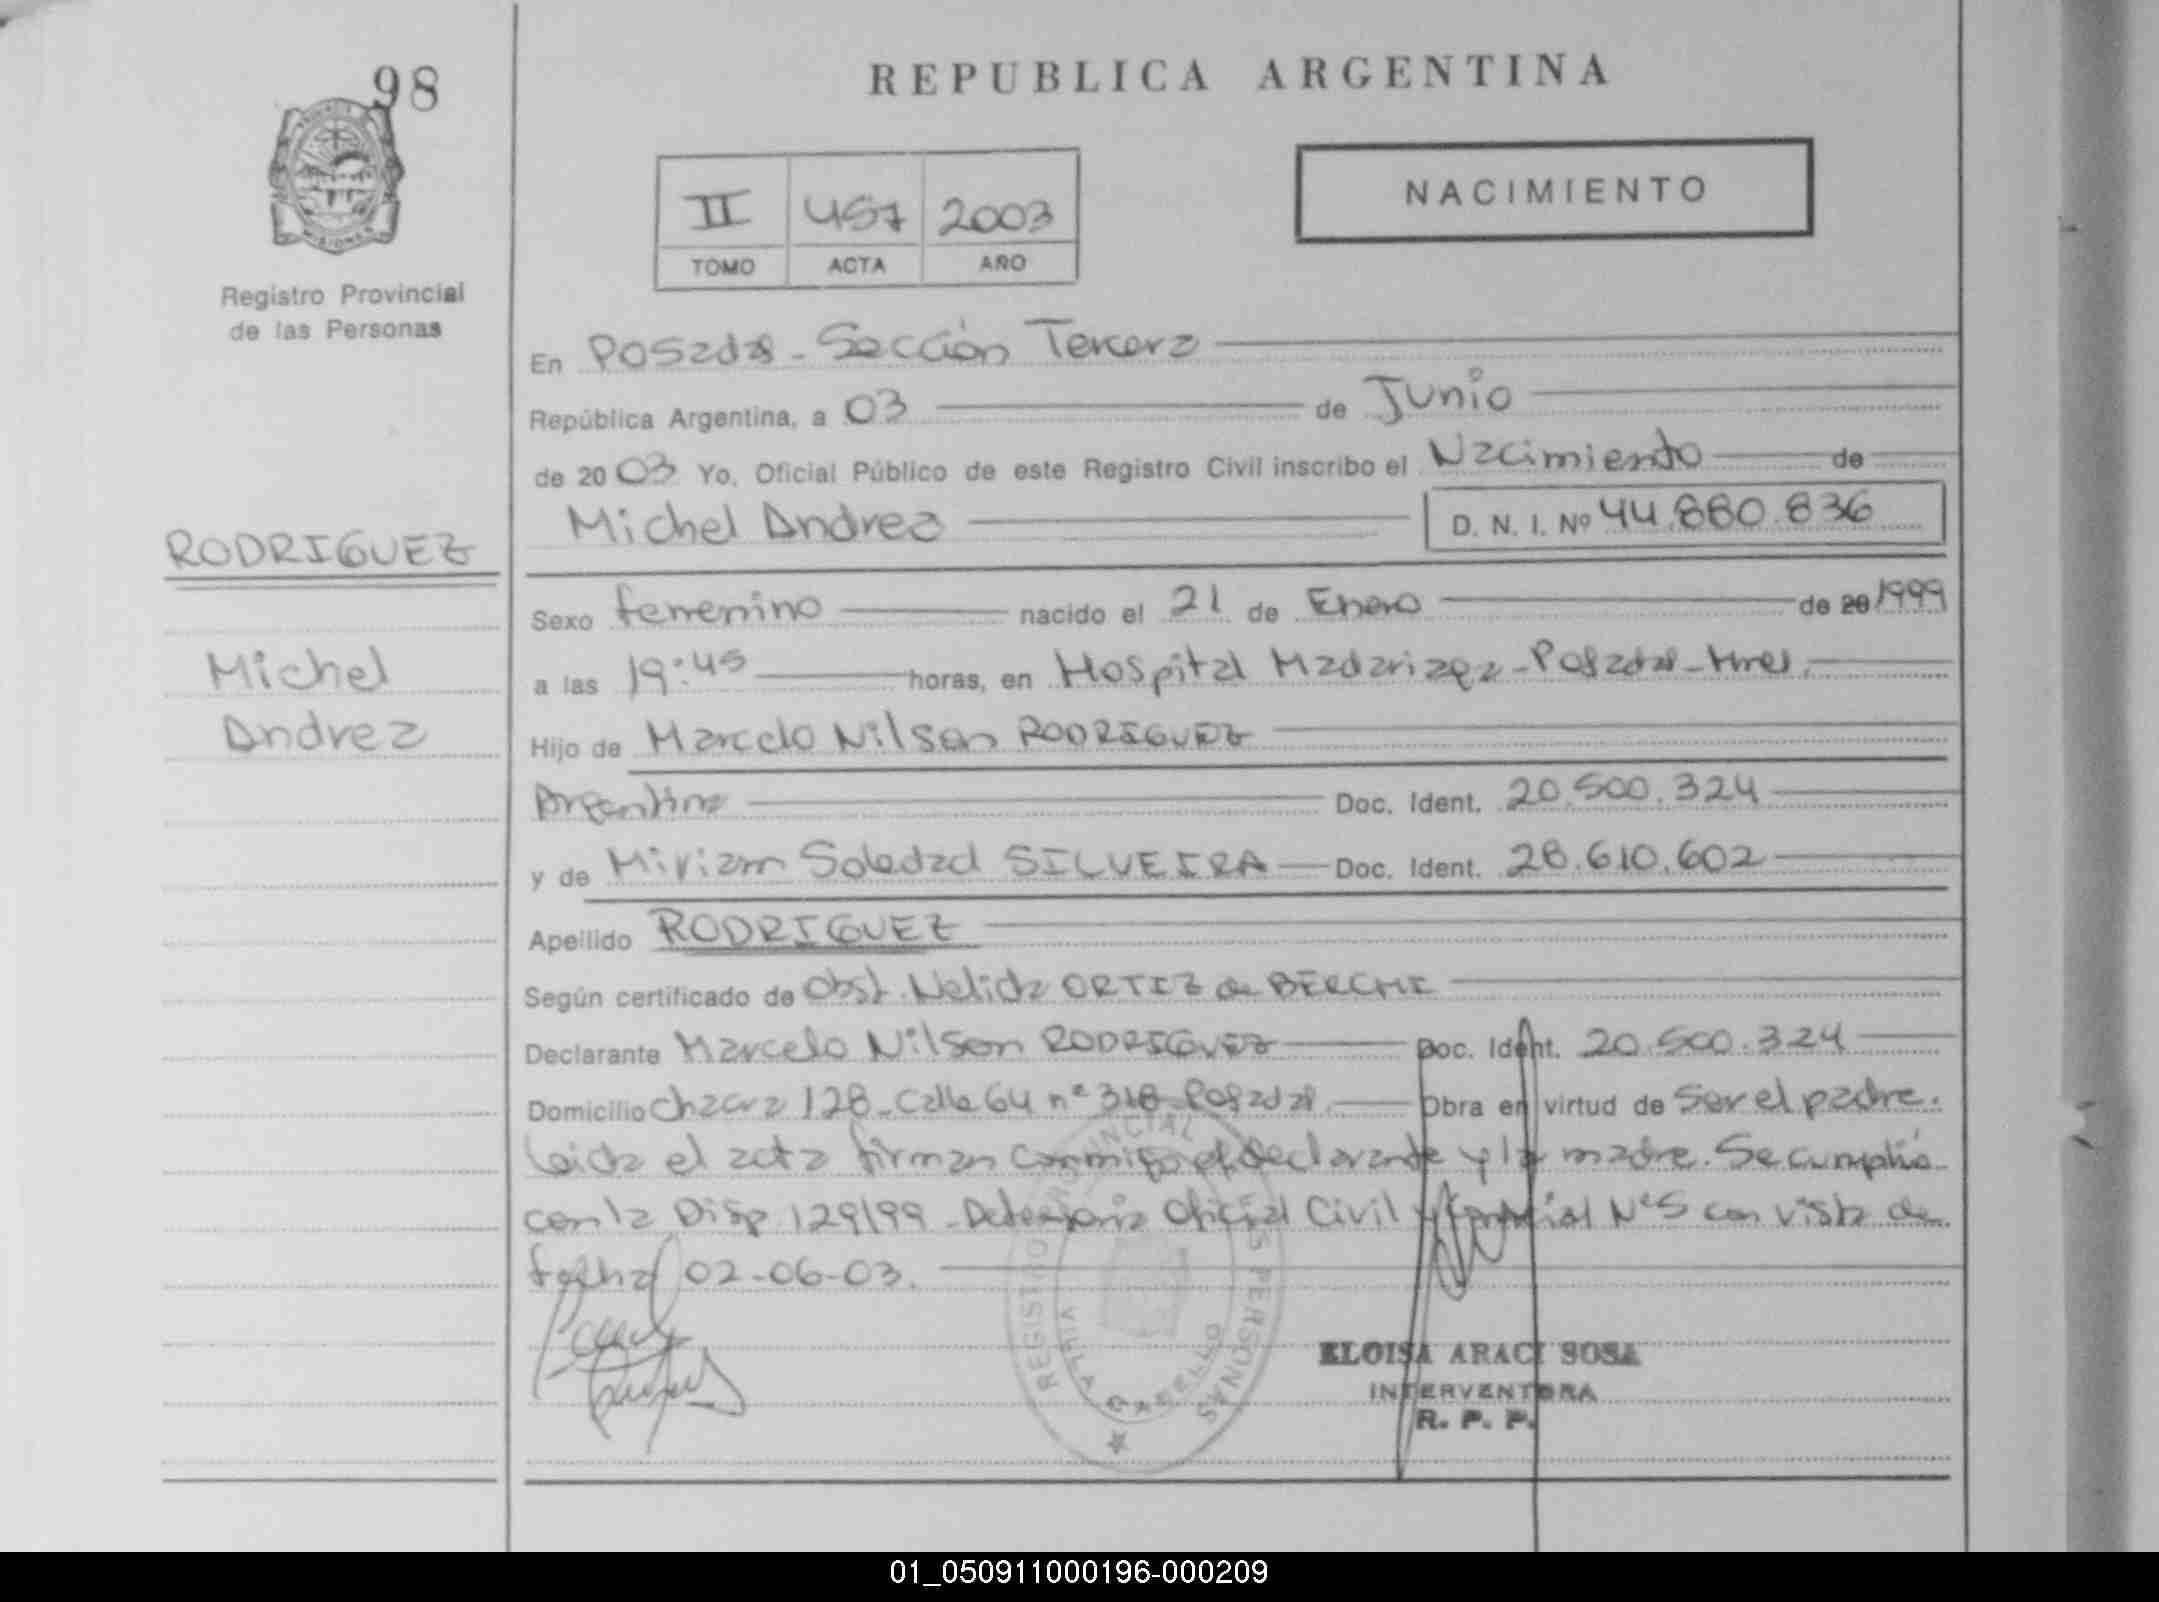 98
REPUBLICA ARGENTINA
NACIMIENTO
II 457 2003
TOMO ACTA AÑO
MISIONES
Registro Provincial
de las Personas
En Posadas - Sección Tercera
República Argentina, a 03 de Junio
de 2003 Yo, Oficial Público de este Registro Civil inscribo el Nacimiento de
Michel Andrea D. N. I. Nº 44.880.836
RODRIGUEZ
Michel
Andrea
Sexo femenino nacido el 21 de Enero de 20 1999
a las 19:45 horas, en Hospital Madariaga - Posadas - Mnes.
Hijo de Marcelo Nilson RODRIGUEZ
Argentina Doc. Ident. 20.500.324
y de Miriam Soledad SILVEIRA Doc. Ident. 28.610.602
Apellido RODRIGUEZ
Según certificado de Obst. Nelida ORTIZ de
Declarante Marcelo Nilson RODRIGUEZ Doc. Ident. 20.500.324
Domicilio Chacra 128 - Calle 64 nº 318 - Posadas. Obra en virtud de Ser el padre.
Leida el acta firman conmigo el declarante y la madre. Se cumplió
con la Disp 129/99 - Defensoria Oficial Civil Nº5 con vista de
fecha 02-06-03.
REGISTRO PROVINCIAL PERSONAS
VILLA CABELLO
ELOISA ARACI SOSA
INTERVENTORA
R. P. P.
01_050911000196-000209